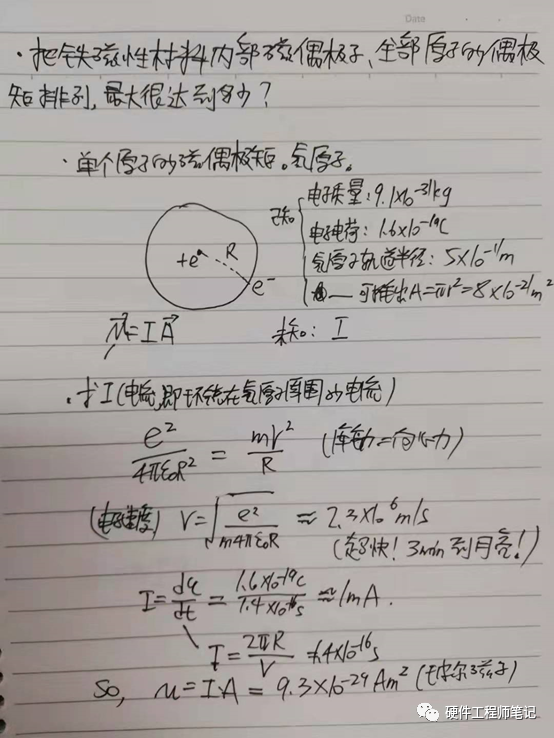 Date
· 把铁磁性材料内部磁偶极子、全部原子的偶极
矩排列,最大很达到多少?
· 单个原子的磁偶极矩。氢原子。
已知
电子质量: 9.1×10⁻³¹kg
电子电荷: 1.6×10⁻¹⁹C
氢原子轨道半径: 5×10⁻¹¹m
可推出A=πr²=8×10⁻²¹m²
+e R e⁻
μ⃗=IA⃗ 未知: I
· 求I(电流,即环绕在氢原子周围的电流)
e²/4πε₀R² = mv²/R (库勒=向心力)
(电子速度) V=√(e²/m4πε₀R) ≈ 2.3×10⁶m/s
(超快! 3min到月亮!)
I=dq/dt = 1.6×10⁻¹⁹C/1.4×10⁻¹⁶s ≈1mA.
T=2πR/V =1.4×10⁻¹⁶s
So, μ=I·A = 9.3×10⁻²⁴Am² (玻尔磁子)
硬件工程师笔记